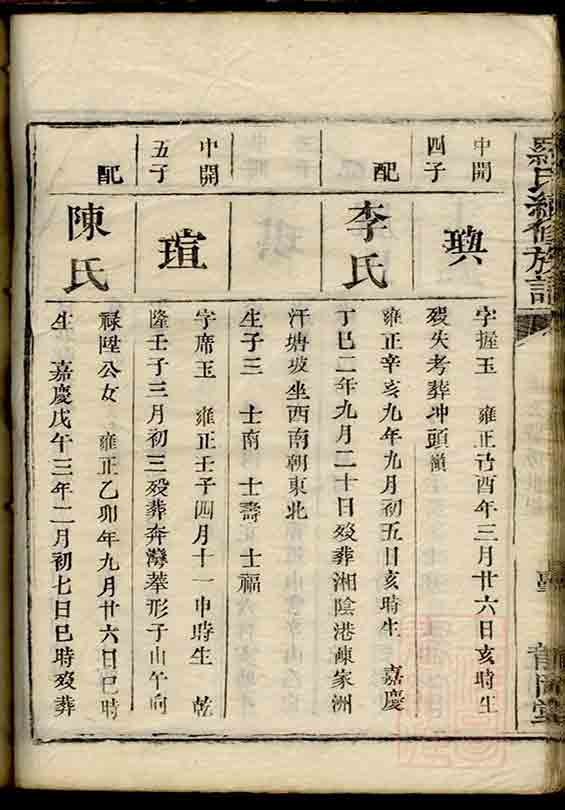 羅氏續修族譜
中開
四子
璵
字握玉 雍正己酉年三月廿六日亥時生
歿失考葬冲頭嶺
配
李氏
雍正辛亥九年九月初五日亥時生 嘉慶
丁巳二年九月二十日歿葬湘陰港陳家洲
汗塘坡坐西南朝東北
生子三 士南 士壽 士福
中開
五子
瑄
字席玉 雍正壬子四月十一申時生 乾
隆壬子三月初三歿葬奔灣華形子山午向
配
陳氏
祿陞公女 雍正乙卯年九月廿六日巳時
生 嘉慶戊午三年二月初七日巳時歿葬